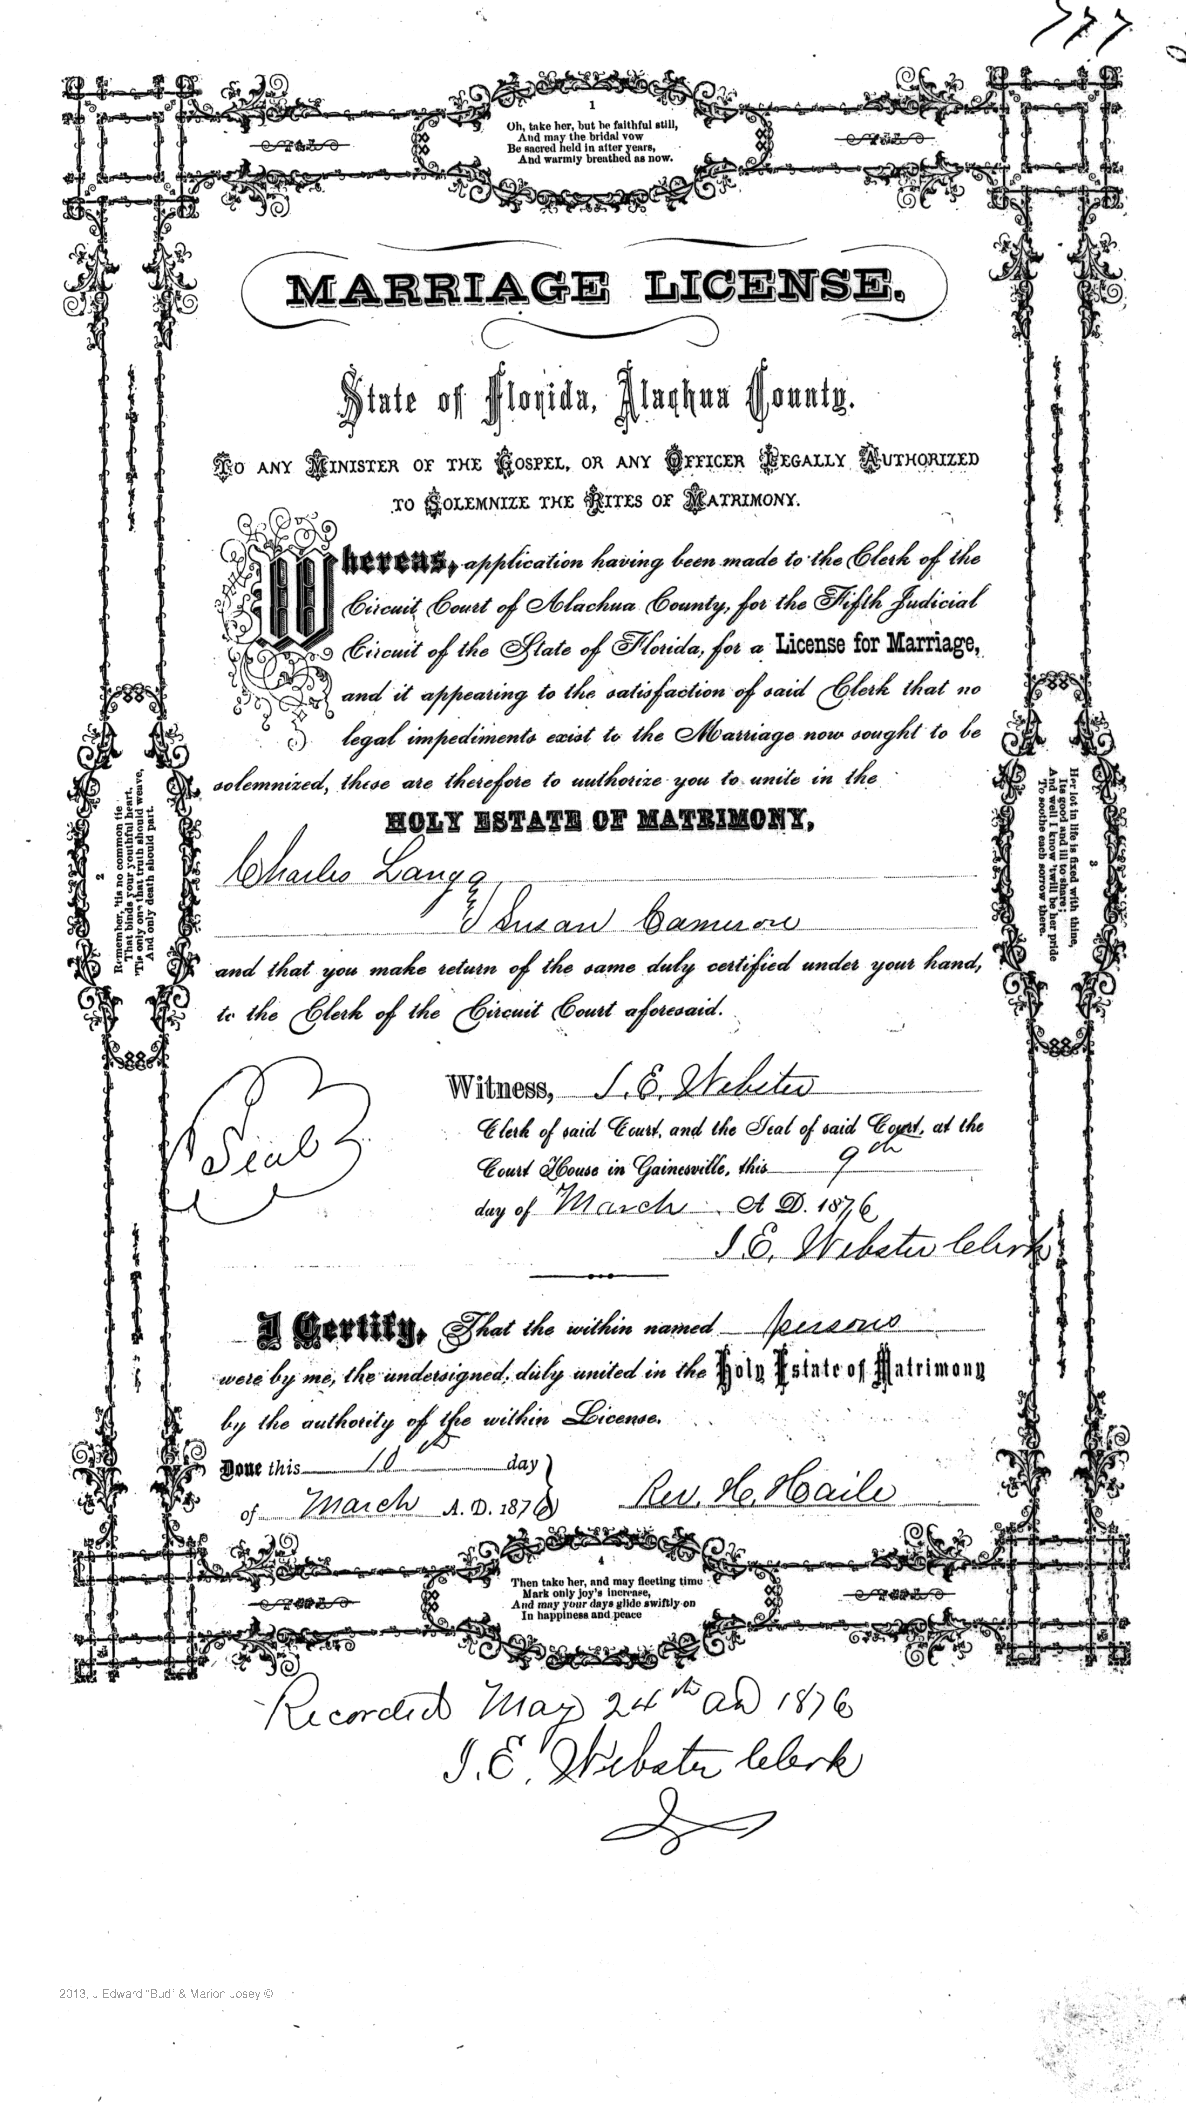 777
1
Oh, take her, but be faithful still,
And may the bridal vow
Be sacred held in after years,
And warmly breathed as now.
MARRIAGE LICENSE.
State of Florida, Alachua County.
TO ANY MINISTER OF THE GOSPEL, OR ANY OFFICER LEGALLY AUTHORIZED
TO SOLEMNIZE THE RITES OF MATRIMONY.
Whereas, application having been made to the Clerk of the
Circuit Court of Alachua County, for the Fifth Judicial
Circuit of the State of Florida, for a License for Marriage,
and it appearing to the satisfaction of said Clerk that no
legal impediments exist to the Marriage now sought to be
solemnized, these are therefore to authorize you to unite in the
HOLY ESTATE OF MATRIMONY,
Charles Lang
& Susan Cameron
and that you make return of the same duly certified under your hand,
to the Clerk of the Circuit Court aforesaid.
2
Remember, 'tis no common tie
That binds your youthful heart,
'Tis only one that truth should weave,
And only death should part.
3
Her lot in life is fixed with thine,
Its good and ill to share;
And well I know 'twill be her pride
To soothe each sorrow there.
Seal
Witness, J. E. Webster
Clerk of said Court, and the Seal of said Court, at the
Court House in Gainesville, this 9th
day of March A D. 1876
J. E. Webster Clerk
I Certify, That the within named persons
were by me, the undersigned, duly united in the Holy Estate of Matrimony
by the authority of the within License.
Done this 10th day
of March A. D. 1876
Rev. H. Haile
4
Then take her, and may fleeting time
Mark only joy's increase,
And may your days glide swiftly on
In happiness and peace
Recorded May 24th AD 1876
J. E. Webster Clerk
2013, J. Edward "Bud" & Marion Josey ©